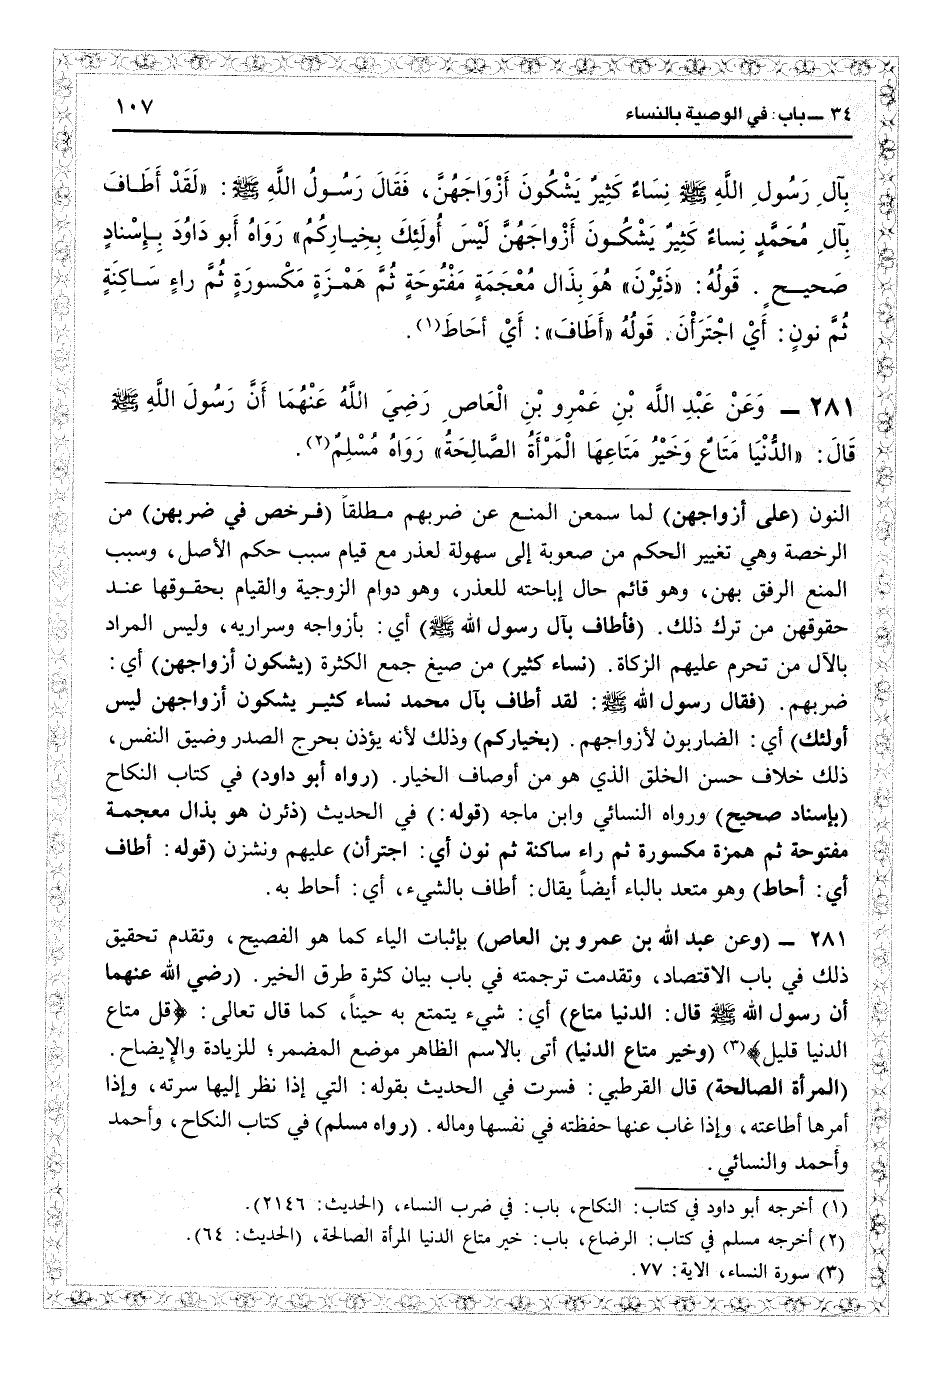 ٣٤ ـ باب: في الوصية بالنساء ١٠٧
بِآلِ رَسُولِ اللَّهِ ﷺ نِسَاءٌ كَثِيرٌ يَشْكُونَ أَزْوَاجَهُنَّ، فَقَالَ رَسُولُ اللَّهِ ﷺ: «لَقَدْ أَطَافَ
بِآلِ مُحَمَّدٍ نِساءٌ كَثِيرٌ يَشْكُونَ أَزْواجَهُنَّ لَيْسَ أُولَئِكَ بِخِيارِكُمْ» رَوَاهُ أبو دَاوُدَ بِإسْنادٍ
صَحيحٍ. قَولُهُ: «ذَئِرْنَ» هُوَ بِذَال مُعْجَمَةٍ مَفْتُوحَةٍ ثُمَّ هَمْزَةٍ مَكْسورَةٍ ثُمَّ راءٍ سَاكِنَةٍ
ثُمَّ نونٍ: أَيْ اجْتَرَأْنَ. قَولُهُ «أَطَافَ»: أَيْ أحَاطَ(١).
٢٨١ ـ وَعَنْ عَبْدِ اللَّه بْنِ عَمْرِو بْنِ الْعَاصِ رَضِيَ اللَّهُ عَنْهُمَا أَنَّ رَسُولَ اللَّهِ ﷺ
قَالَ: «الدُّنْيَا مَتَاعٌ وَخَيْرُ مَتَاعِهَا الْمَرْأَةُ الصَّالِحَةُ» رَوَاهُ مُسْلِمٌ(٢).
النون (على أزواجهن) لما سمعن المنع عن ضربهم مطلقاً (فرخص في ضربهن) من
الرخصة وهي تغيير الحكم من صعوبة إلى سهولة لعذر مع قيام سبب حكم الأصل، وسبب
المنع الرفق بهن، وهو قائم حال إباحته للعذر، وهو دوام الزوجية والقيام بحقوقها عند
حقوقهن من ترك ذلك. (فأطاف بآل رسول الله ﷺ) أي: بأزواجه وسراريه، وليس المراد
بالآل من تحرم عليهم الزكاة. (نساء كثير) من صيغ جمع الكثرة (يشكون أزواجهن) أي:
ضربهم. (فقال رسول الله ﷺ: لقد أطاف بآل محمد نساء كثير يشكون أزواجهن ليس
أولئك) أي: الضاربون لأزواجهم. (بخياركم) وذلك لأنه يؤذن بحرج الصدر وضيق النفس،
ذلك خلاف حسن الخلق الذي هو من أوصاف الخيار. (رواه أبو داود) في كتاب النكاح
(بإسناد صحيح) ورواه النسائي وابن ماجه (قوله:) في الحديث (ذئرن هو بذال معجمة
مفتوحة ثم همزة مكسورة ثم راء ساكنة ثم نون أي: اجترأن) عليهم ونشزن (قوله: أطاف
أي: أحاط) وهو متعد بالباء أيضاً يقال: أطاف بالشيء، أي: أحاط به.
٢٨١ ـ (وعن عبد الله بن عمرو بن العاص) بإثبات الياء كما هو الفصيح، وتقدم تحقيق
ذلك في باب الاقتصاد، وتقدمت ترجمته في باب بيان كثرة طرق الخير. (رضي الله عنهما
أن رسول الله ﷺ قال: الدنيا متاع) أي: شيء يتمتع به حيناً، كما قال تعالى: ﴿قل متاع
الدنيا قليل﴾(٣) (وخير متاع الدنيا) أتى بالاسم الظاهر موضع المضمر؛ للزيادة والإيضاح.
(المرأة الصالحة) قال القرطبي: فسرت في الحديث بقوله: التي إذا نظر إليها سرته، وإذا
أمرها أطاعته، وإذا غاب عنها حفظته في نفسها وماله. (رواه مسلم) في كتاب النكاح، وأحمد
وأحمد والنسائي.
(١) أخرجه أبو داود في كتاب: النكاح، باب: في ضرب النساء، (الحديث: ٢١٤٦).
(٢) أخرجه مسلم في كتاب: الرضاع، باب: خير متاع الدنيا المرأة الصالحة، (الحديث: ٦٤).
(٣) سورة النساء، الاية: ٧٧.